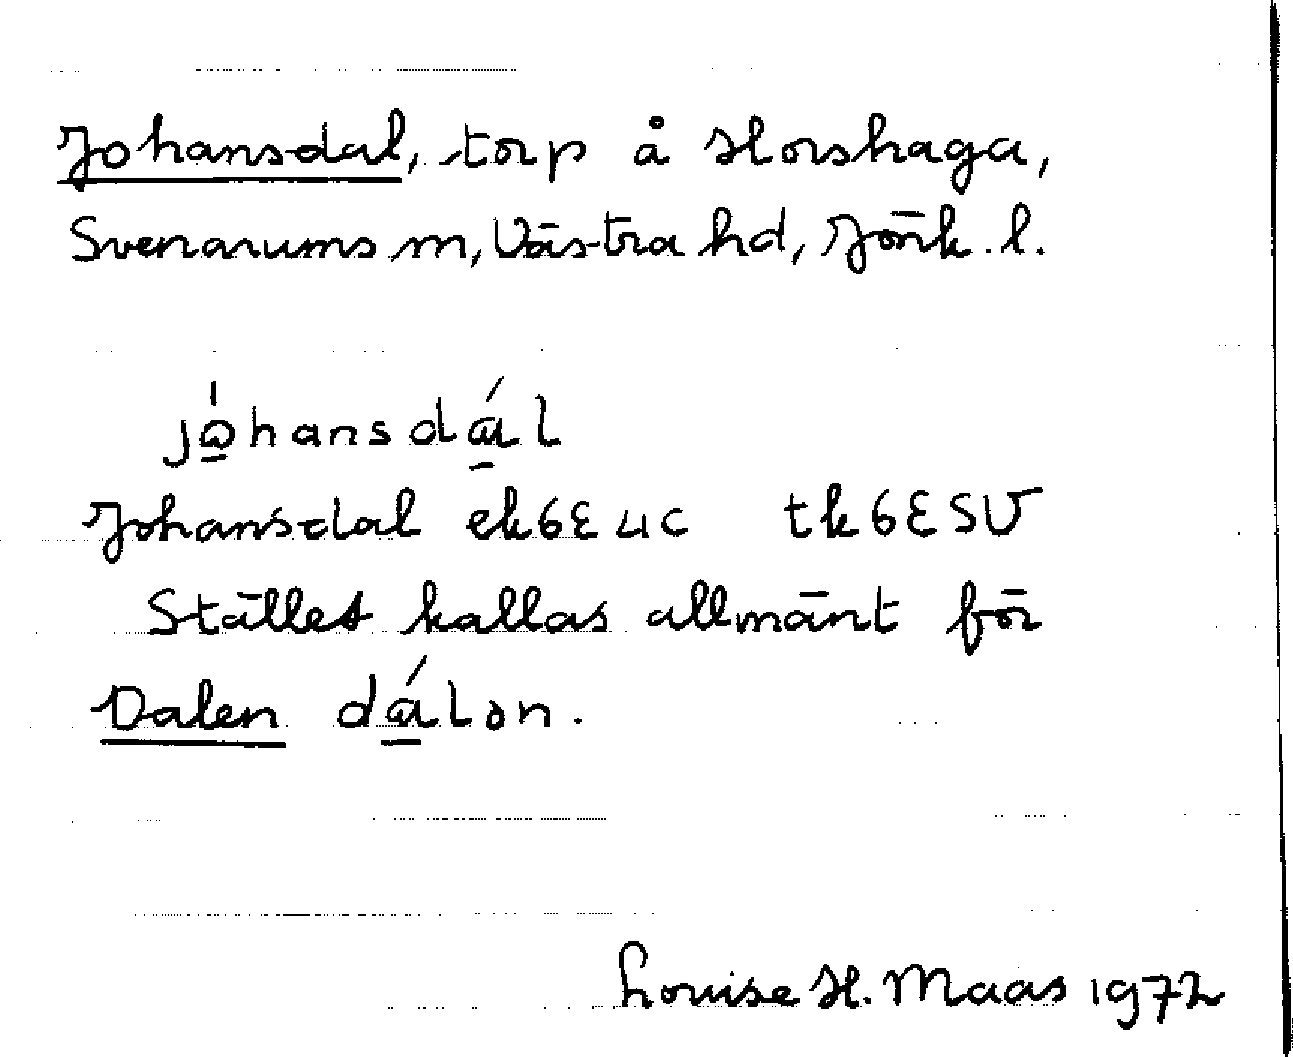 Johansdal, torp å Horshaga,
Svenarums sn, Västra hd, Jönk. l.
johansdal
Johansdal ek6E4c tk6E5V
Stället kallas allmänt för
Dalen dalən.
Louise H. Maas 1972